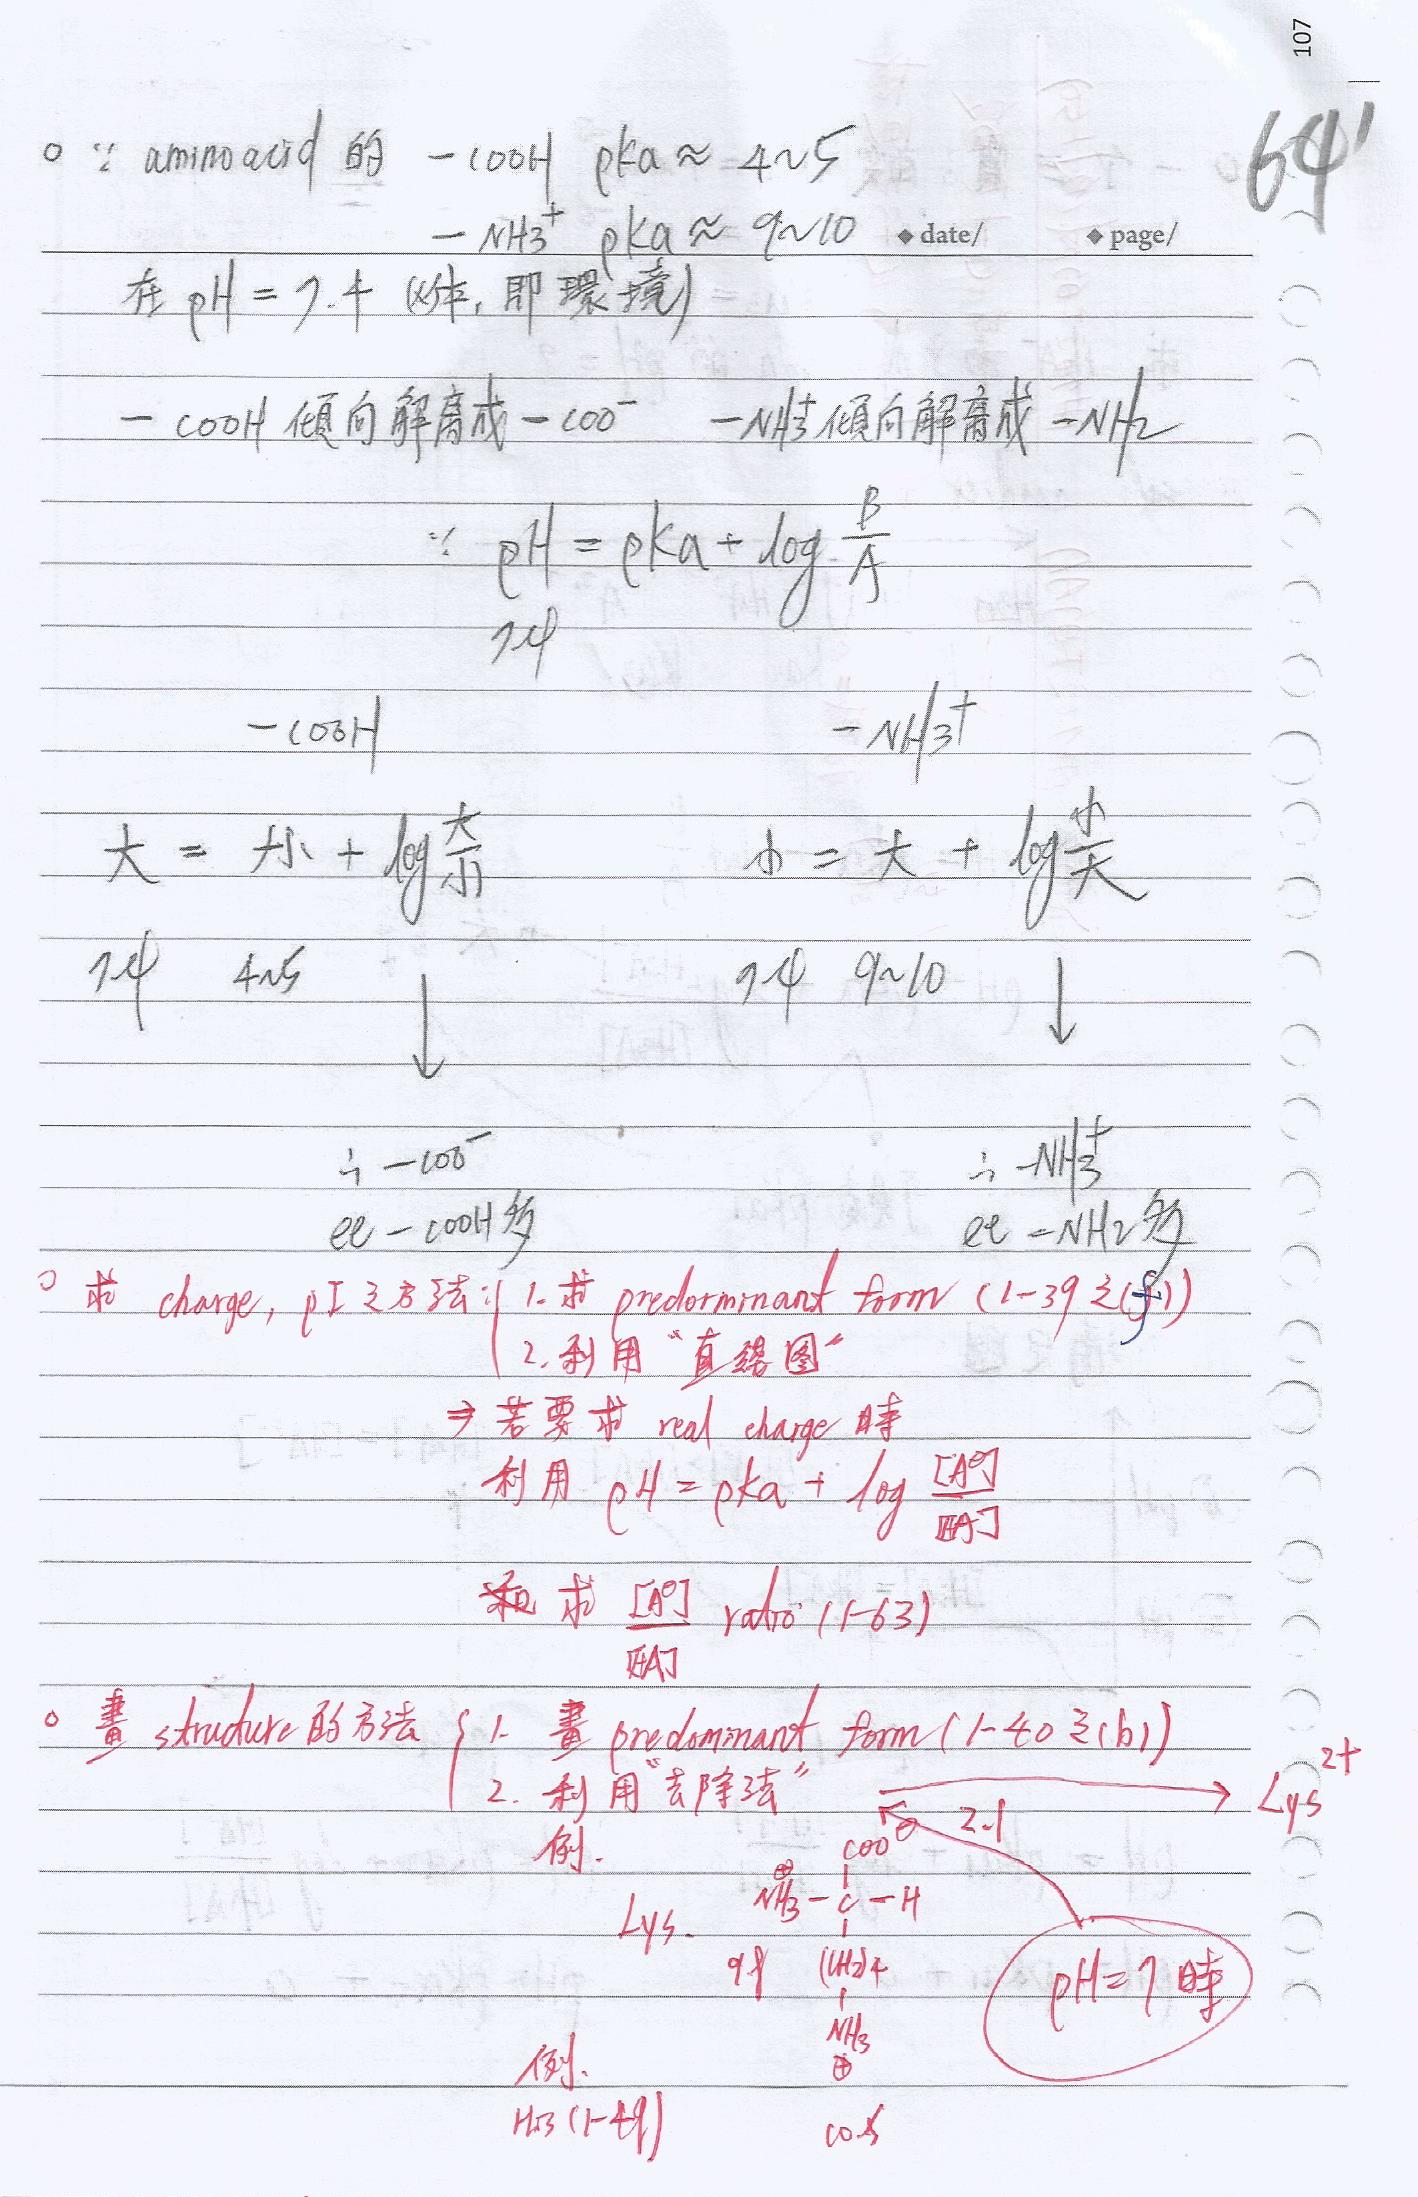 107
64'
。∵ amino acid 的 -COOH pka ≈ 4~5
-NH3⁺ pka ≈ 9~10 ◆ date/ ◆ page/
在 pH = 7.4 (人体, 即環境)
-COOH 傾向解离成 -COO⁻ -NH3⁺ 傾向解离成 -NH2
∵ pH = pka + log B/A
7.4
-COOH -NH3⁺
大 = 小 + log 大/小 小 = 大 + log 小/大
7.4 4~5 7.4 9~10
↓ ↓
∴ -COO⁻ ∴ -NH3⁺
比 -COOH 多 比 -NH2 多
。求 charge, pI 之方法: { 1. 求 predorminant form (1-39 之(f))
2. 利用 "直線图"
⇒ 若要求 real charge 時
利用 pH = pka + log [A⊖]/[HA]
求 [A⊖]/[HA] ratio (1-63)
。畫 structure 的方法 { 1. 畫 predominant form (1-40 之(b))
2. 利用 "去除法" → Lys²⁺
例. COO⊖ 2.1
⊕NH3 - C - H
Lys.
(CH2)4 pH = 7 時
NH3
⊕
例.
His (1-49)